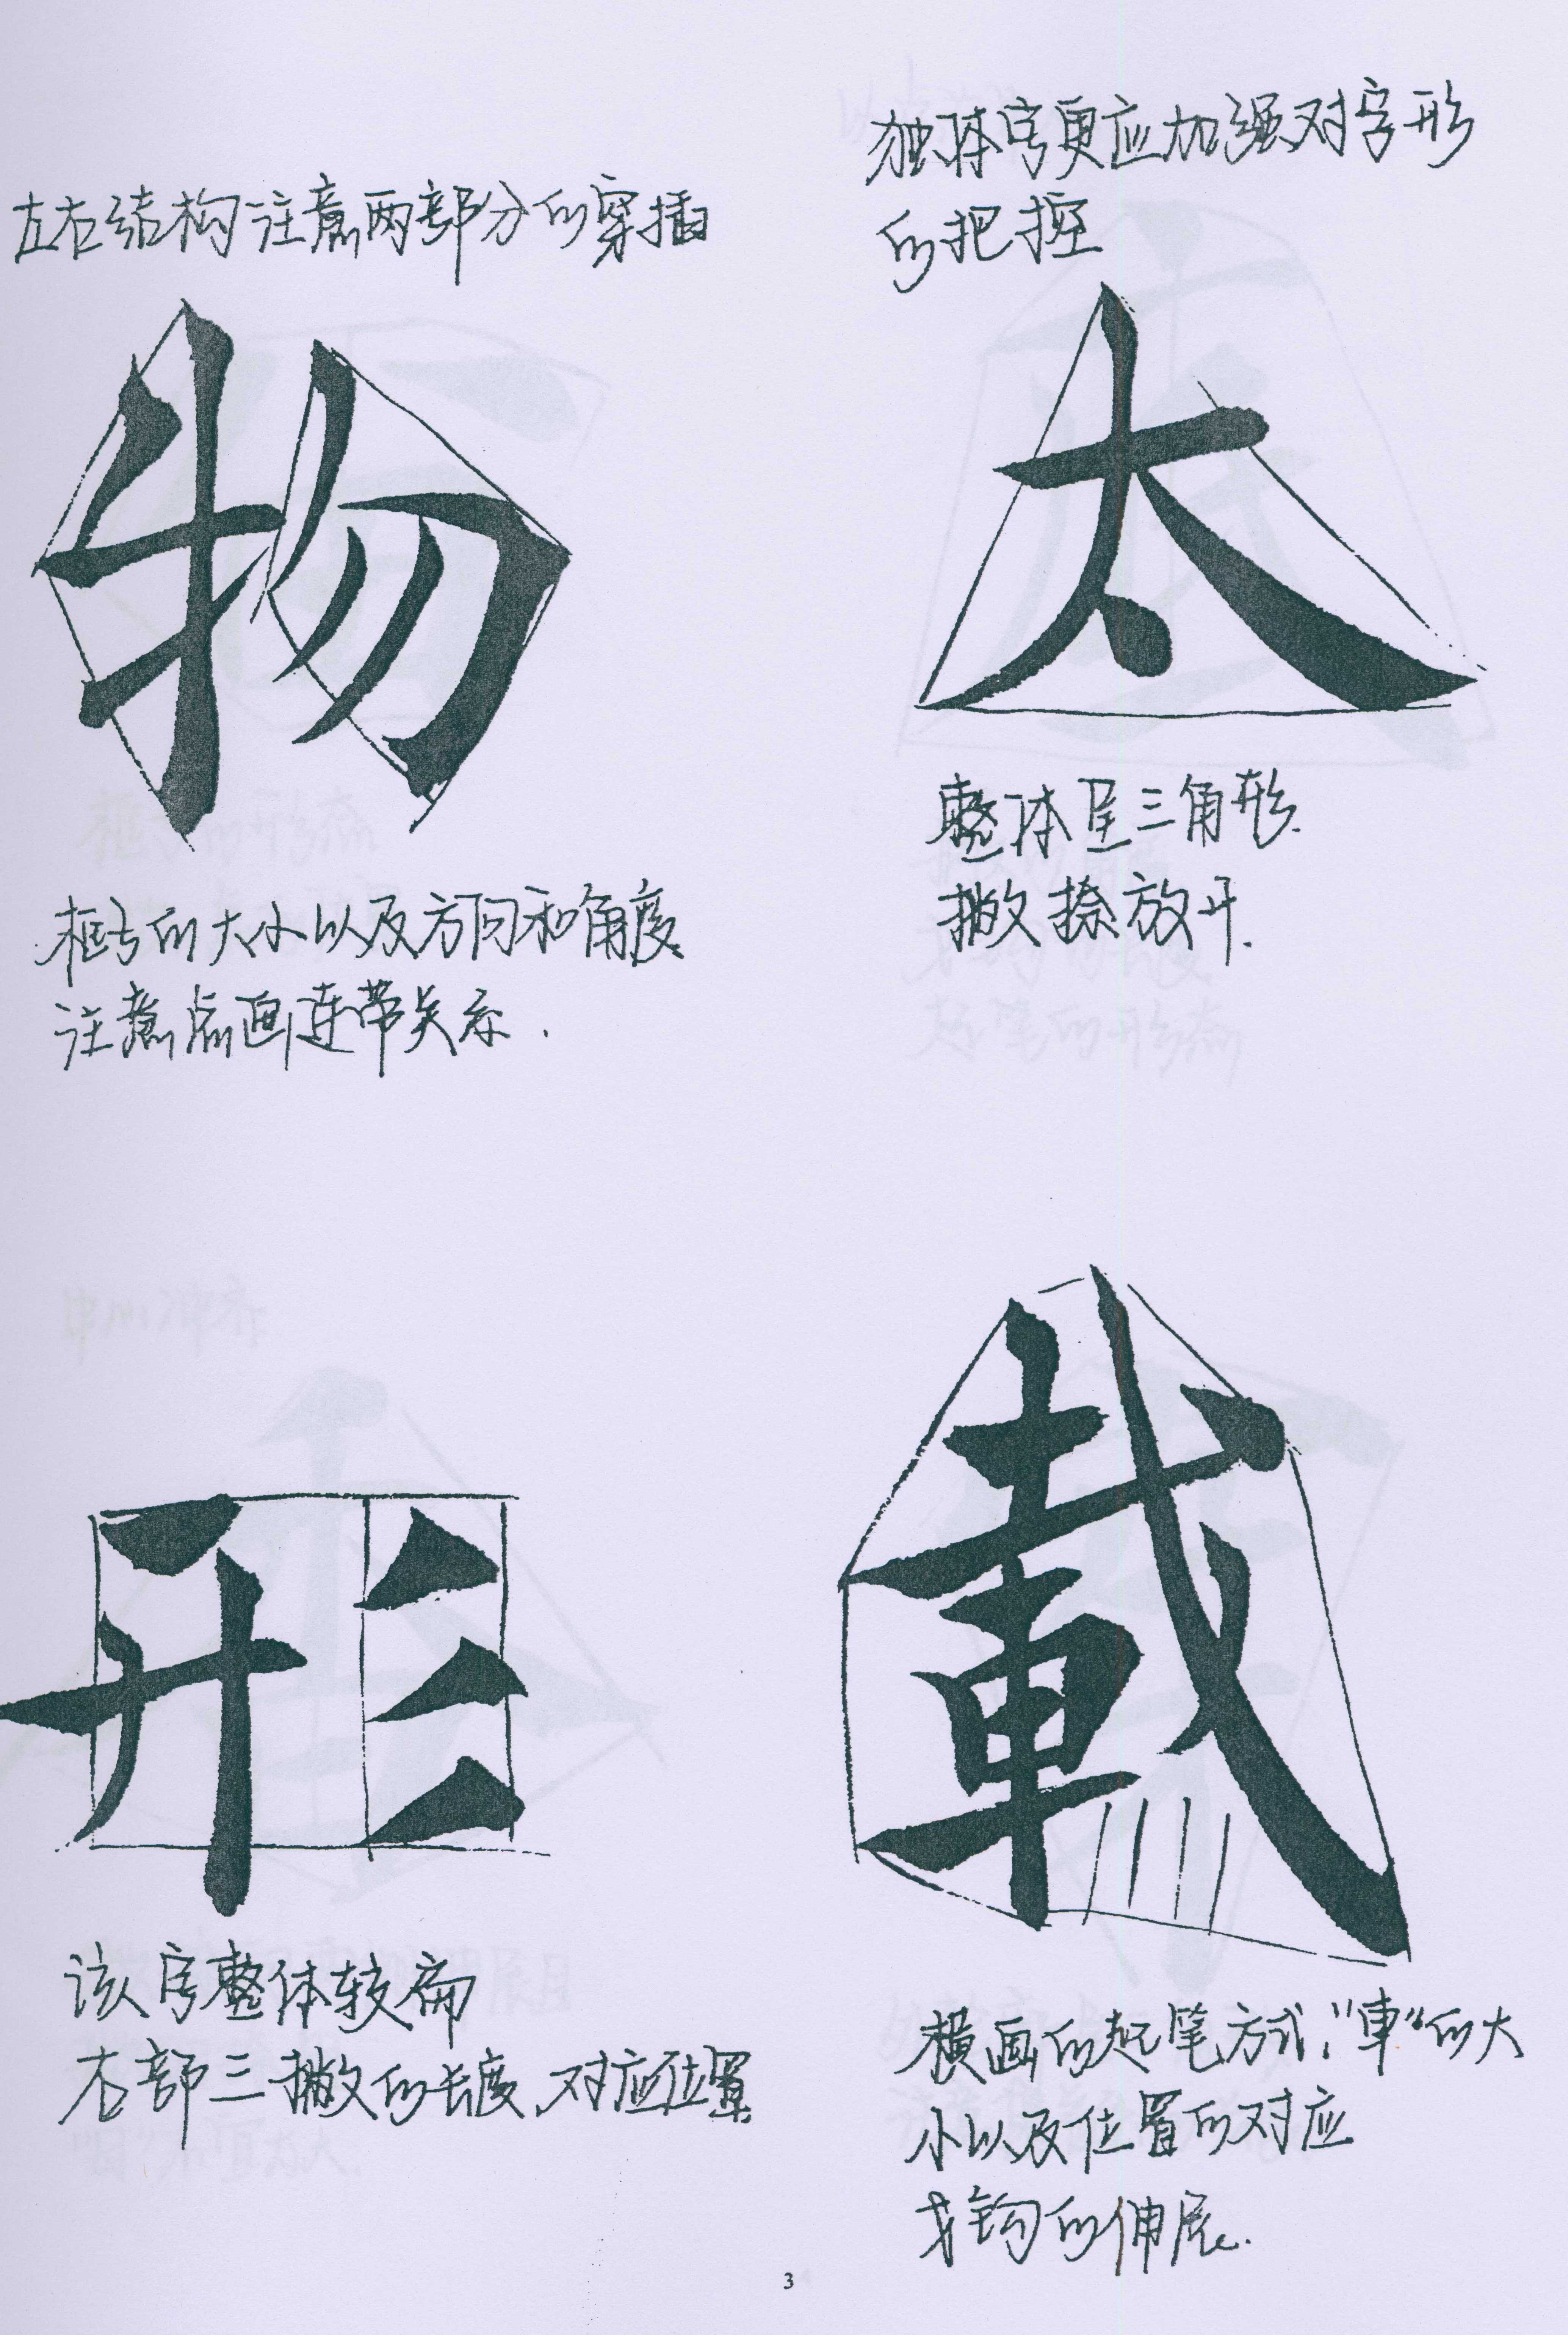 左右结构注意两部分的穿插
物
框与的大小以及方向和角度
注意点画连带关系.
独体字更应加强对字形
的把控
太
整体呈三角形.
撇捺放开.
形
该字整体较扁
右部三撇的长度、对应位置.
載
横画的起笔方式,"車"的大
小以及位置的对应
戈钩的伸展.
3